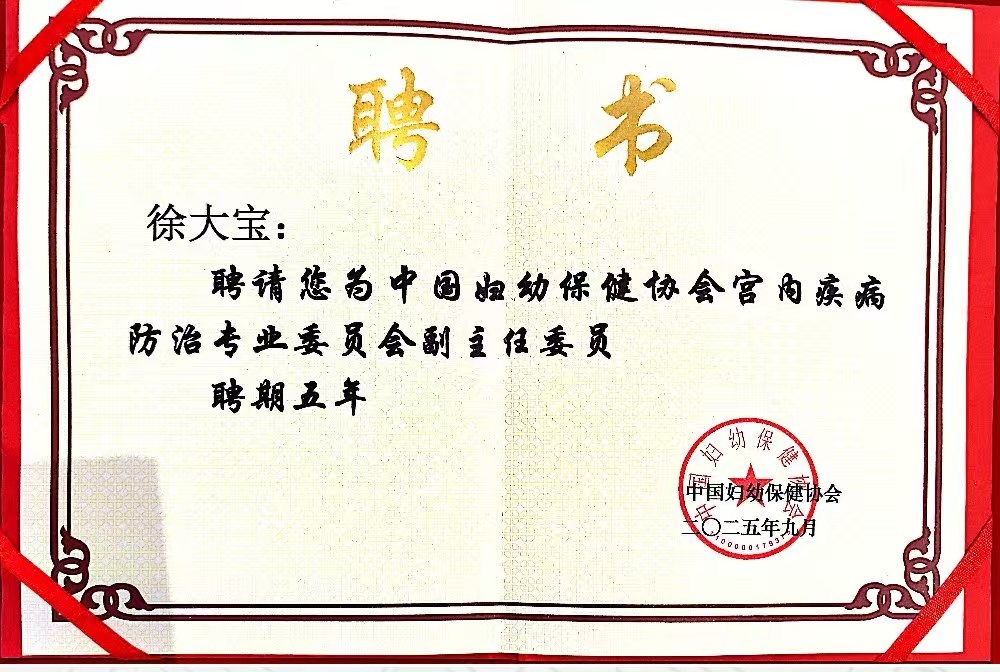 聘书
徐大宝：
聘请您为中国妇幼保健协会宫内疾病
防治专业委员会副主任委员
聘期五年
中国妇幼保健协会
中国妇幼保健协会
二〇二五年九月